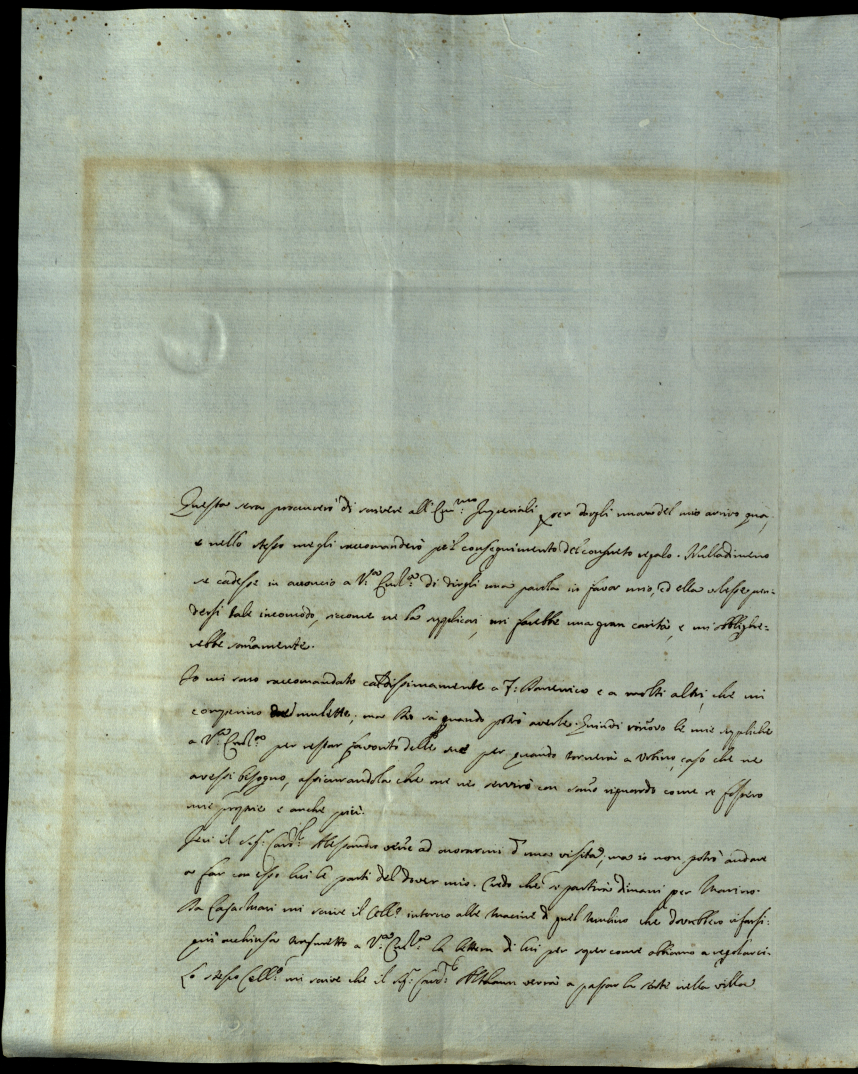 Questa sera procurerò di scrivere all'Em.mo Imperiali per dargli nuova del mio arrivo quà,
e nello stesso me gli raccomanderò p[er] il conseguimento del consueto regalo. Nulladimeno
se cadesse in acconcio a V.ra Ecc.za di dirgli una parola in favor mio, ed ella volesse pren=
dersi tale incomodo, siccome ne la supplico, mi farebbe una gran carità, e mi obblighe=
rebbe som̃amente.
Io mi sono raccomandato caldissimamente a F. Domenico e a molti altri, che mi
comprino due mulette; ma Dio sà quando potrò averle. Quindi rinuovo le mie suppliche
a V.ra Ecc.za per restar favorito delle sue per quando tornerà a Urbino, caso che ne
avessi bisogno, assicurandola che me ne servirò con som̃o riguardo come se fossero
mie proprie e anche più.
Jeri il Sig.r Card.l Alessandro venne ad onorarmi d'una visita; ma io non potrò andare
a far con esso lui le parti del dover mio. Credo che si partirà dimani per Marino.
Da Casamari mi scrive il Coll.o intorno alle Macine di quel Mulino che dovrebbero rifarsi:
qui acchiusa trasmetto a V.ra Ecc.za la lettera di lui per saper come abbiamo a regolarci.
Lo stesso Coll.o mi scrive che il Sig.r Card.l Althann verrà a passar la state nella villa